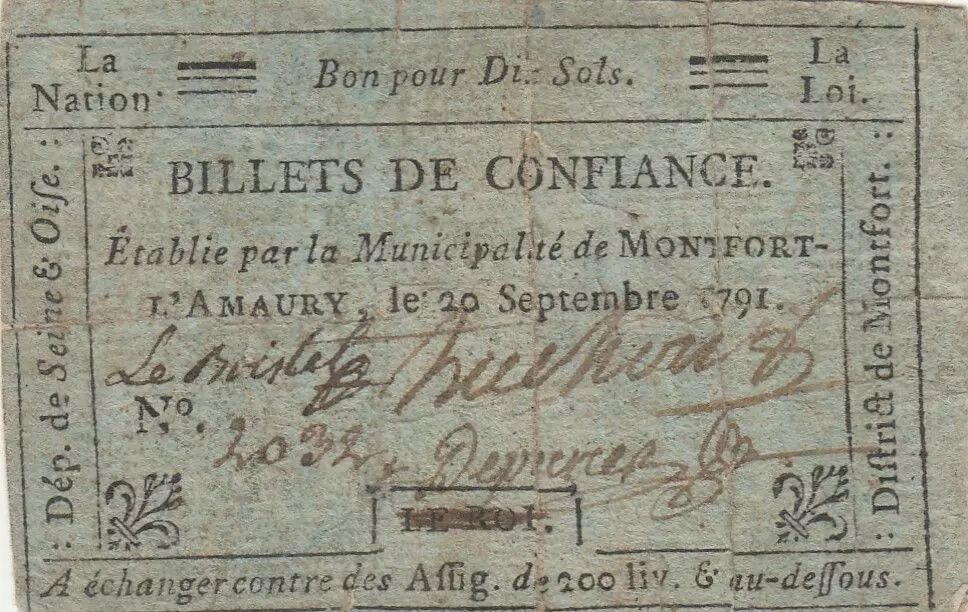 La Nation
Bon pour Dix Sols.
La Loi.
: Dép. de Seine & Oiſe. :
BILLETS DE CONFIANCE.
Établie par la Municipalité de MONTFORT-
L'AMAURY, le 20 Septembre 1791.
Nº.
2032
LE ROI.
: Diſtrict de Montfort. :
A échanger contre des Aſſig. de 200 liv. & au-deſſous.